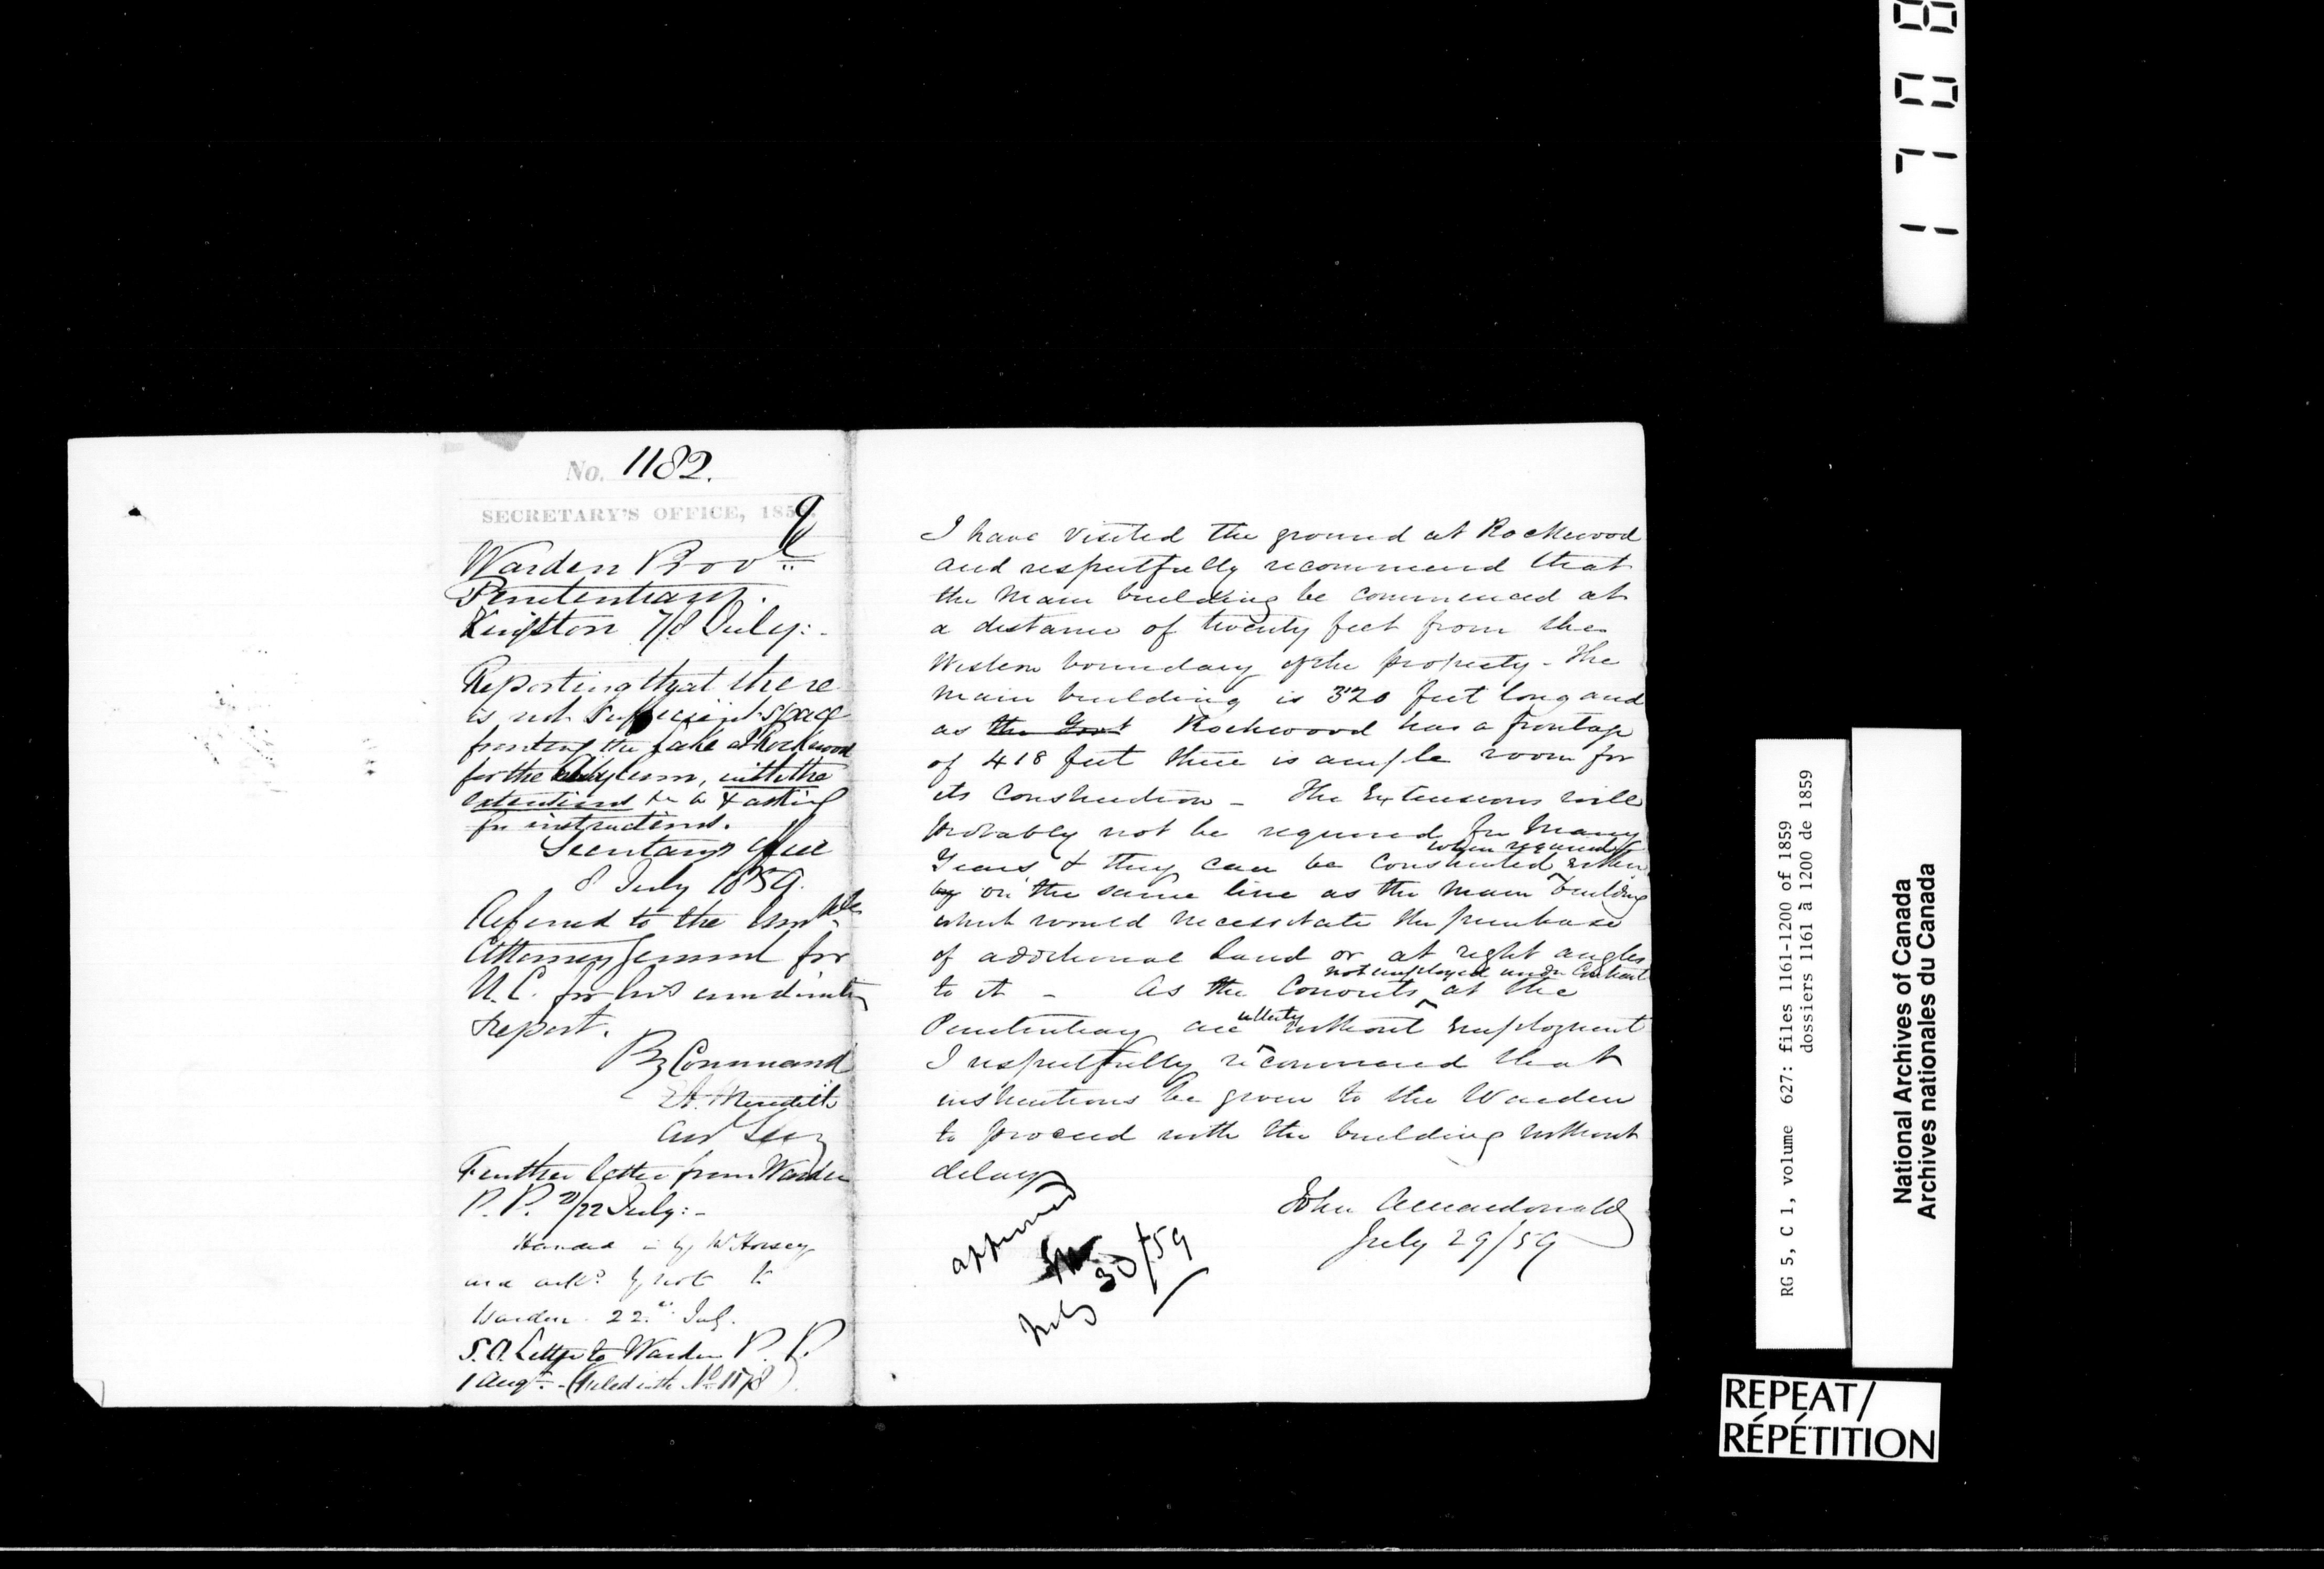 No. 1182.
SECRETARY'S OFFICE, 1859.
Warden Prov^l
Penitentiary.
Kingston 7/8 July:-
Reporting that there
is not sufficient space
fronting the Lake at Rockwood
for the Asylum, with the
extensions & asking
for instructions.
Secretary's Office
8 July 1859.
Referred to the Hon^ble
Attorney General for
U.C. for his consideration
& report.
By Command
E A. Meredith
Asst Secy
Further letter from Warden
P.P. 21/22 July:-
Handed in by Mr Horsey
and ackd by note to
Warden 22^d July.
S.O. Letter to Warden P.P.
1 Augt. - (Filed with No 1178)
I have visited the ground at Rockwood
and respectfully recommend that
the Main building be commenced at
a distance of twenty feet from the
Western boundary of the property - The
main building is 320 feet long and
as the Govt Rockwood has a frontage
of 418 feet there is ample room for
its construction - The Extensions will
probably not be required for Many
when required
Years & they can be constructed either
by on the same line as the Main building
which would necessitate the purchase
of additional land or at right angles
not employed under Contract
to it - As the Convicts at the
utterly
Penitentiary are without Employment
I respectfully recommend that
instructions be given to the Warden
to proceed with the building without
delay
John A Macdonald
July 29/59
approved
July 30/59
1708
RG 5, C 1, volume 627: files 1161-1200 of 1859
dossiers 1161 à 1200 de 1859
National Archives of Canada
Archives nationales du Canada
REPEAT/
RÉPÉTITION